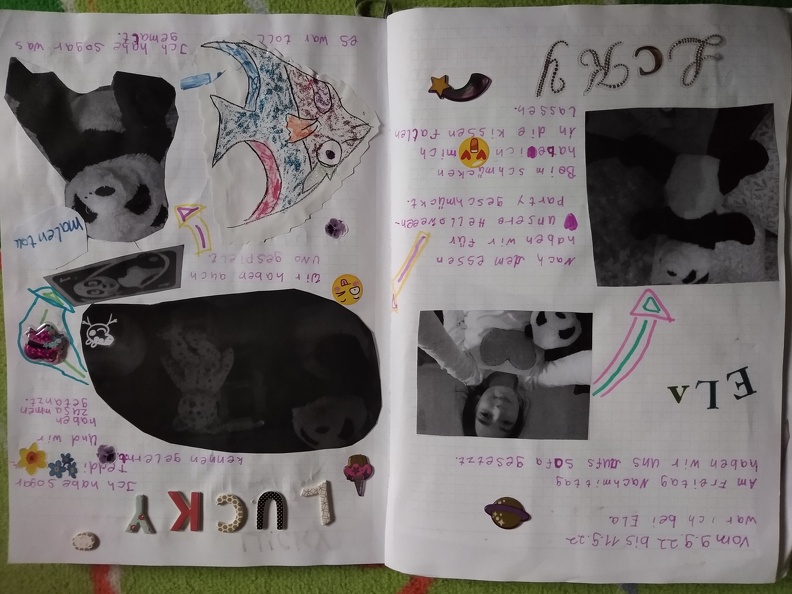 Vom 9.9.22 bis 11.9.22
war ich bei Ela.
Am Freitag Nachmittag
haben wir uns aufs sofa gesetzt.
ELA
Nach dem essen
haben wir für
unsere Helloween-
Party geschmückt.
Beim schmücken
habe ich mich
in die kissen fallen
lassen.
LcKy
LUCKY
Ich habe sogar
Teddi kennen gelernt.
Und wir
haben
zusammen
getanzt.
Wir haben auch
UNO gespielt.
Ich habe sogar was
gemalt.
es war toll